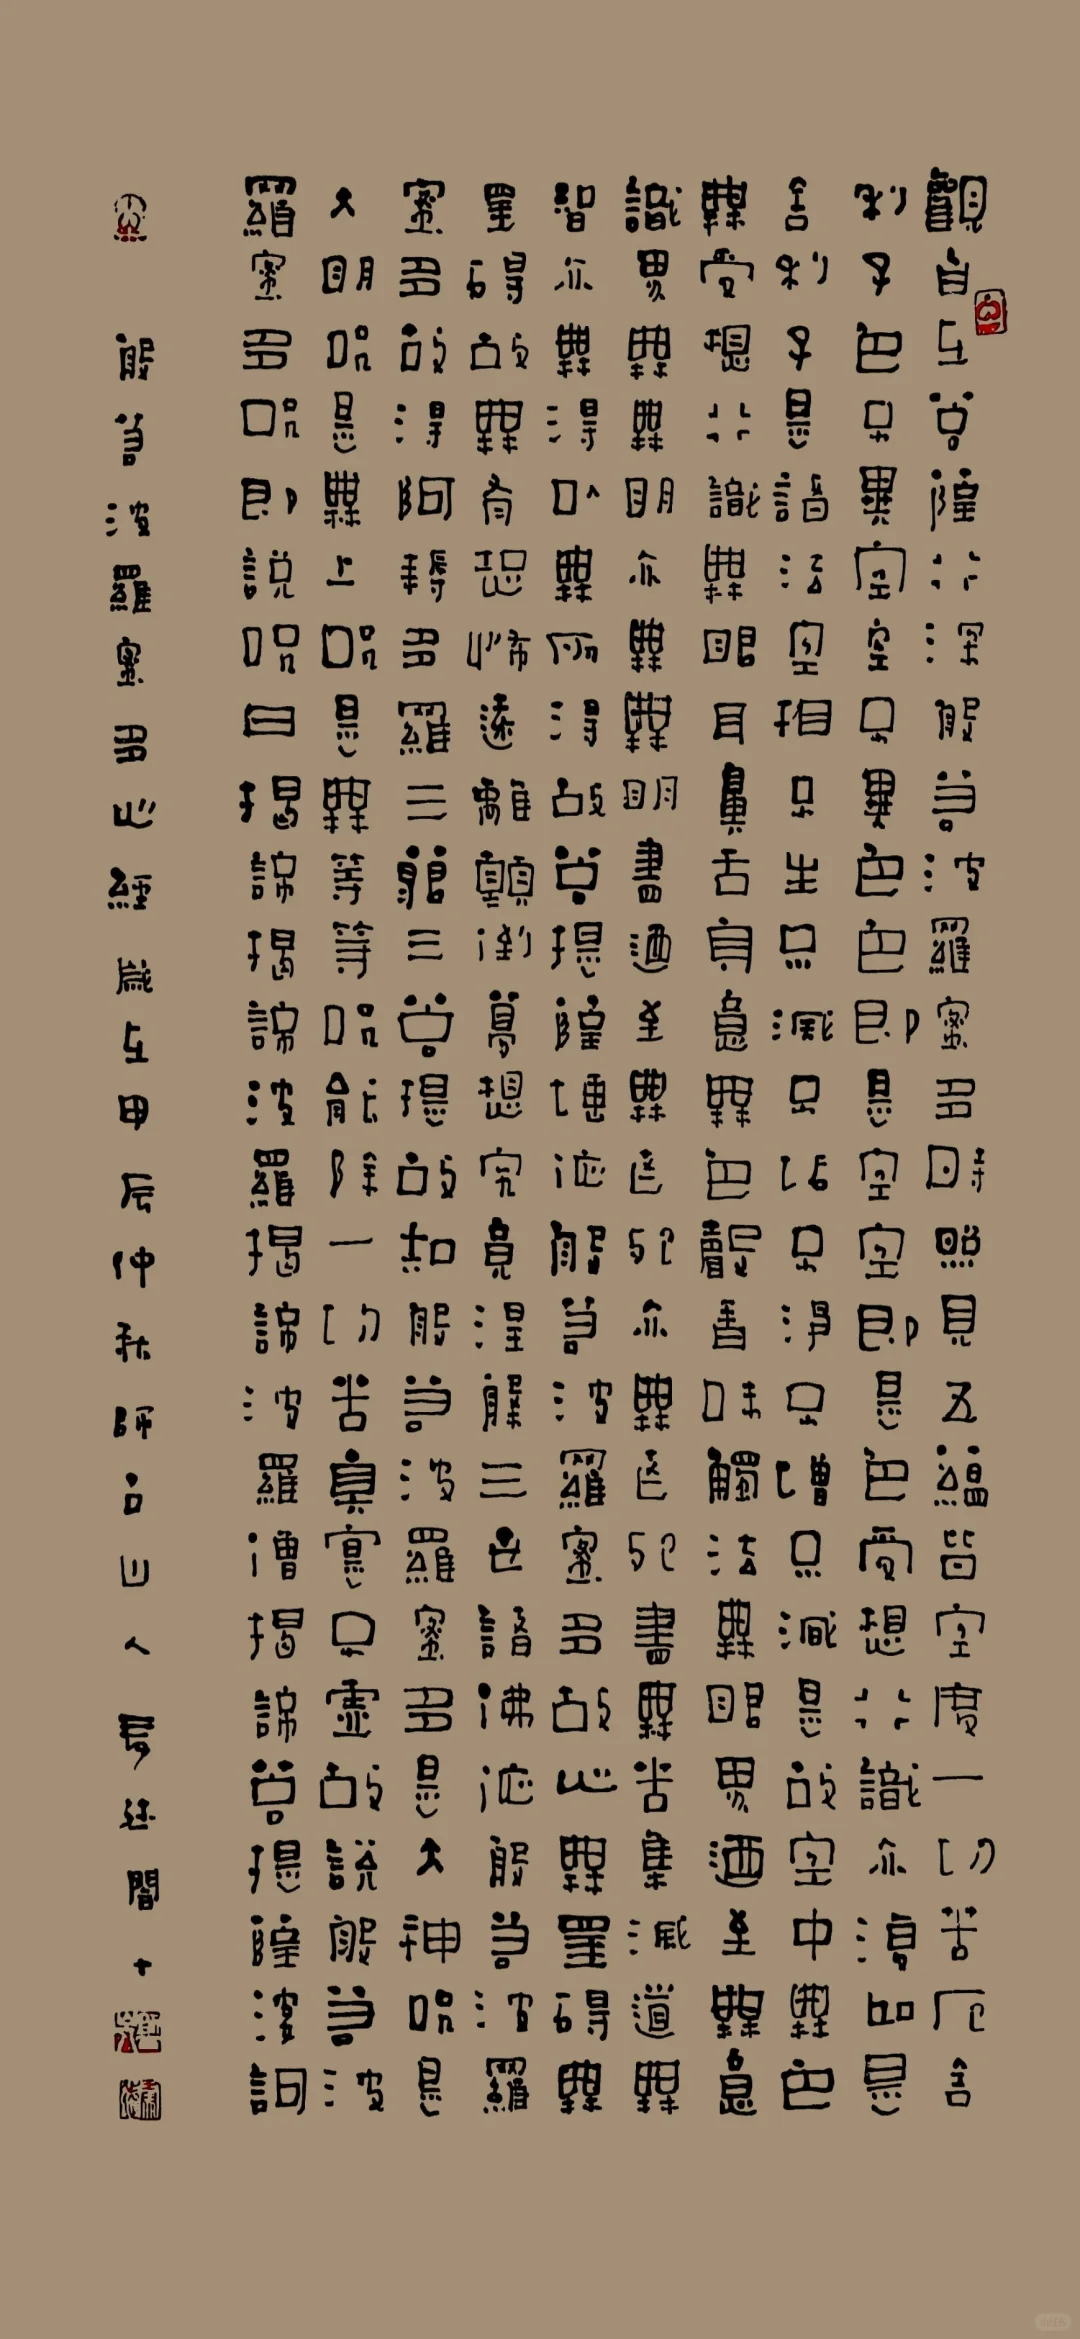 觀自在菩薩行深般若波羅蜜多時照見五蘊皆空度一切苦厄舍
利子色不異空空不異色色即是空空即是色受想行識亦復如是
舍利子是諸法空相不生不滅不垢不淨不增不減是故空中無色
無受想行識無眼耳鼻舌身意無色聲香味觸法無眼界迺至無意
識界無無明亦無無明盡迺至無老死亦無老死盡無苦集滅道無
智亦無得以無所得故菩提薩埵依般若波羅蜜多故心無罣礙無
罣礙故無有恐怖遠離顛倒夢想究竟涅槃三世諸佛依般若波羅
蜜多故得阿耨多羅三藐三菩提故知般若波羅蜜多是大神咒是
大明咒是無上咒是無等等咒能除一切苦真實不虛故說般若波
羅蜜多咒即說咒曰揭諦揭諦波羅揭諦波羅僧揭諦菩提薩婆訶
般若波羅蜜多心經歲在甲辰仲秋師山人